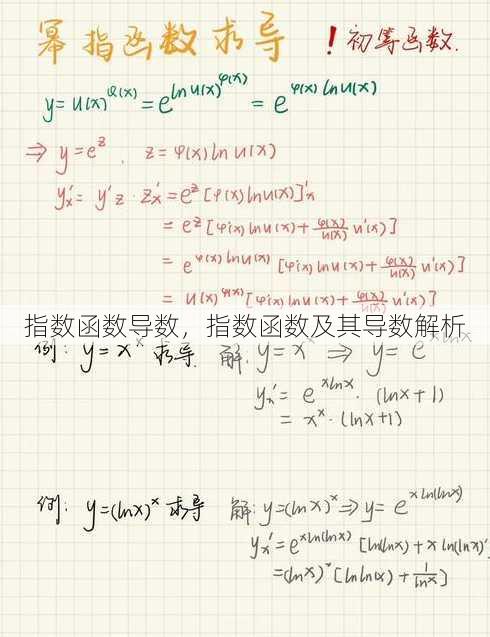 幂指函数求导 ！初等函数.
y=u(x)^φ(x)=e^lnu(x)^φ(x) = e^φ(x)lnu(x)
⇒ y=e^z . z=φ(x)lnu(x)
y'x= y'z·z'x=e^z[φ(x)lnu(x)]'x
= e^z[φ'(x)lnu(x)+φ(x)/u(x) u'(x)]
= e^φ(x)lnu(x) [φ'(x)lnu(x)+φ(x)/u(x) u'(x)]
= u(x)^φ(x)[φ'(x)lnu(x)+φ(x)/u(x) u'(x)]
指数函数导数，指数函数及其导数解析
例: y=x^x 求导 解: y=x^x ⇒ y=e^xlnx
y'x= e^xlnx·(lnx+1)
= x^x·(lnx+1)
例: y=(lnx)^x 求导 解: y=(lnx)^x⇒y=e^xln(lnx)
y'x=e^xln(lnx)[ln(lnx)+xln(lnx)'
=(lnx)^x[lnln(x)+1/lnx]